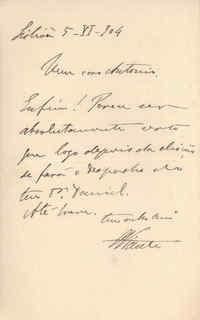 Lisboa 5-XI-904
Meu caro Antonio
Enfim! Parece ser
absolutamente certo
que logo depois da eleição
se fará o despacho do
teu Pe. Daniel.
Até breve.